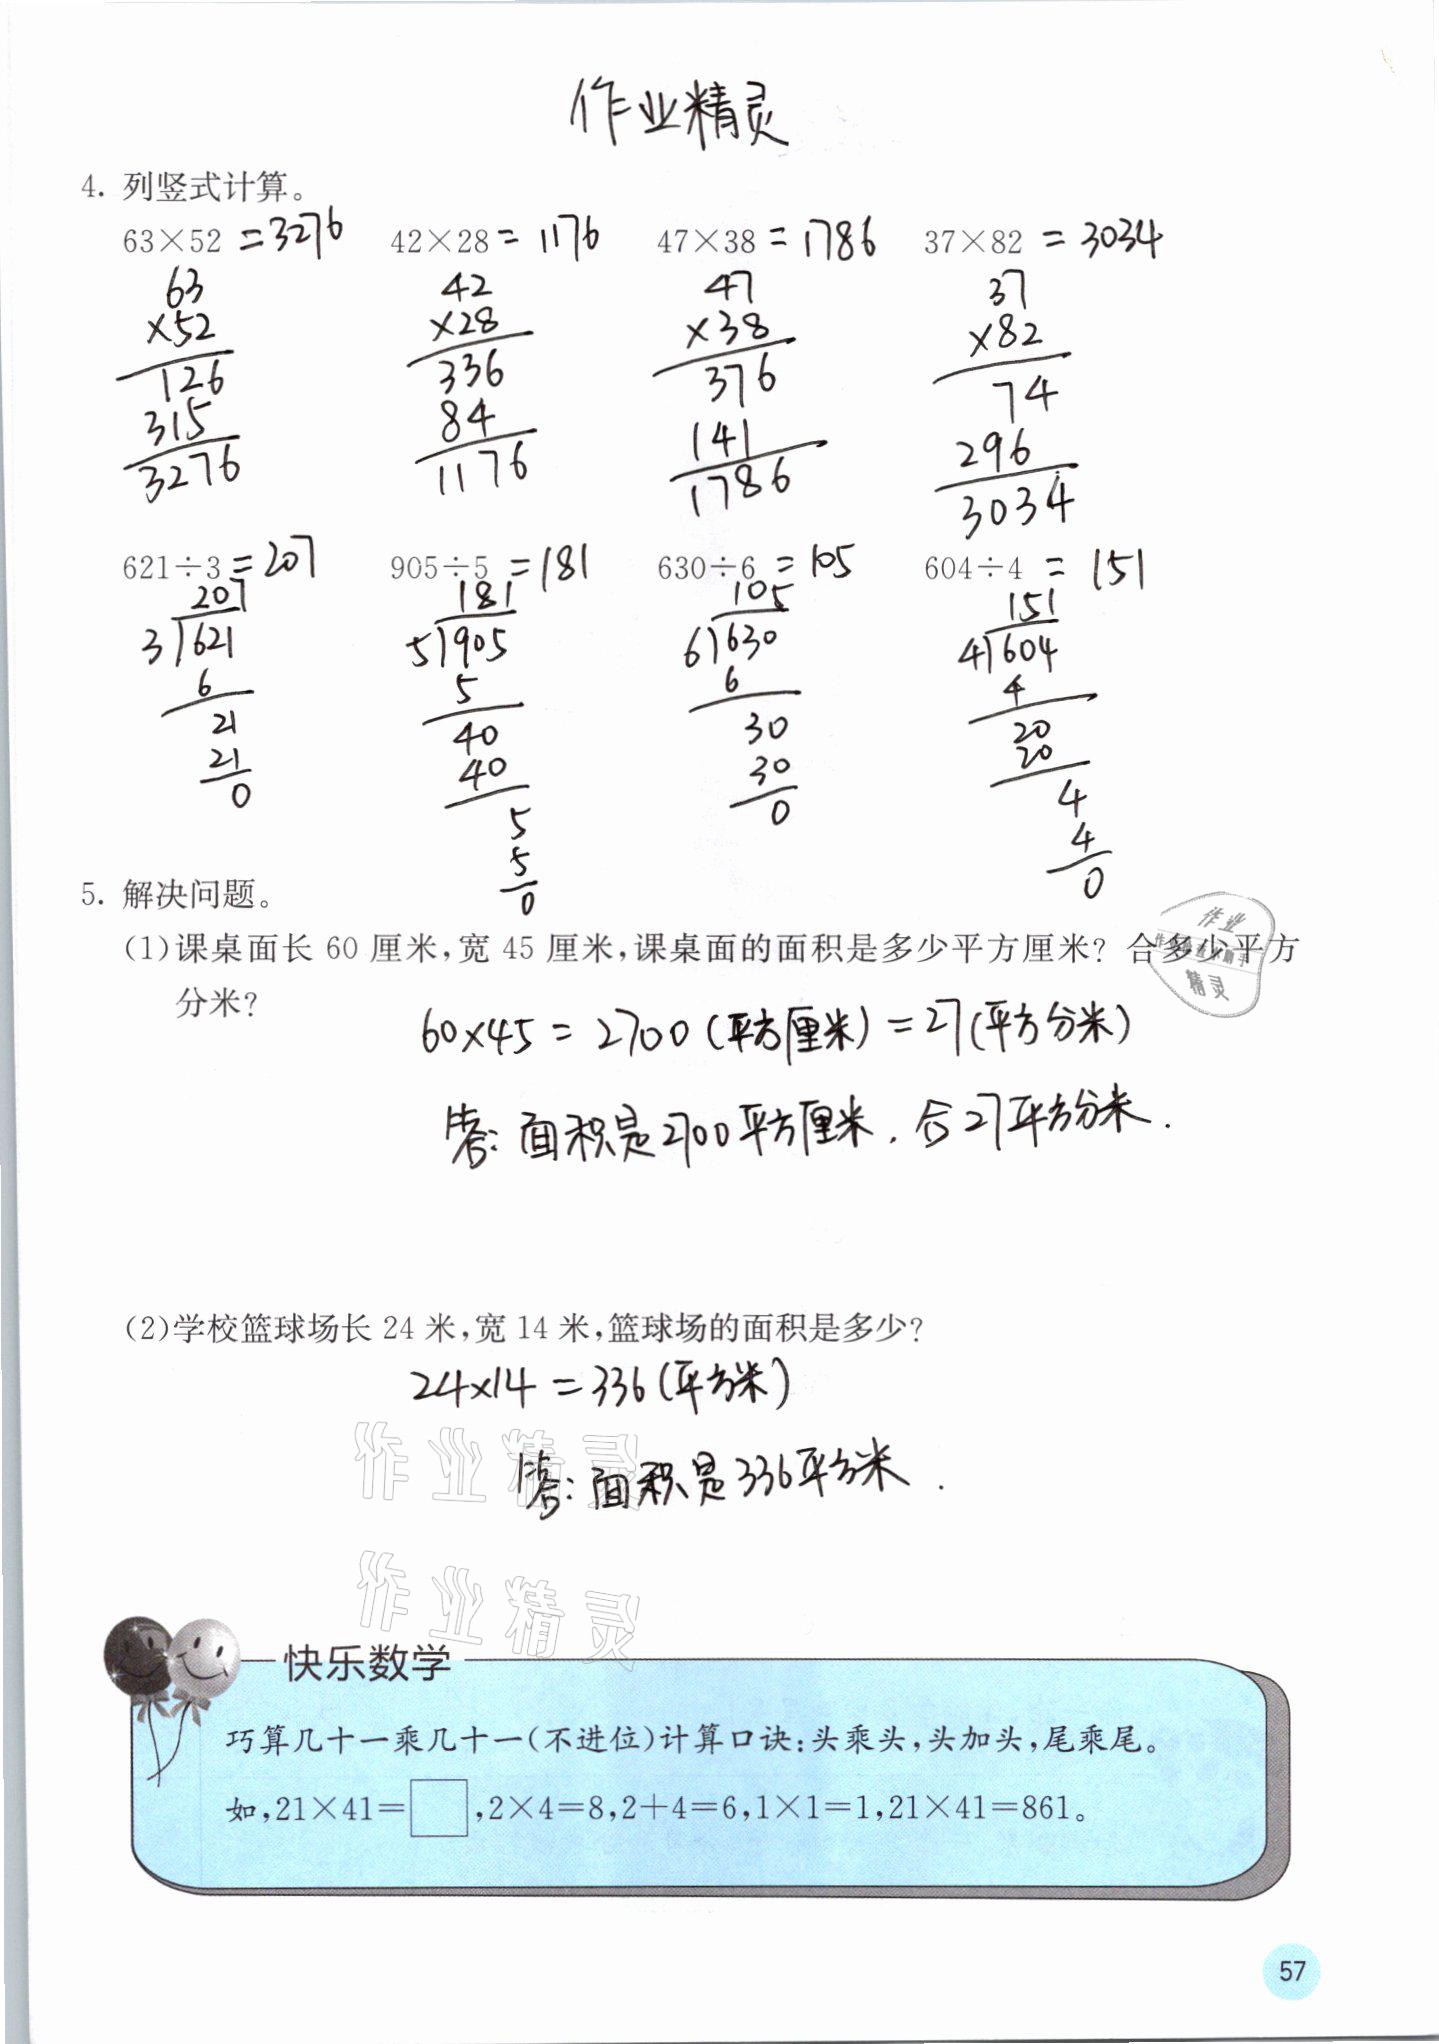 作业精灵
4. 列竖式计算。
63×52 =3276 42×28 = 1176 47×38 = 1786 37×82 = 3034
63 42 47 37
×52 ×28 ×38 ×82
126 336 376 74
315 84 141 296
3276 1176 1786 3034
621÷3 = 207 905÷5 =181 630÷6 = 105 604÷4 = 151
207 181 105 151
3 621 5 905 6 630 4 604
6 5 6 4
21 40 30 20
21 40 30 20
0 5 0 4
5 4
0 0
5. 解决问题。
(1)课桌面长 60 厘米,宽 45 厘米,课桌面的面积是多少平方厘米? 合多少平方
分米?
60×45 = 2700 (平方厘米) = 27 (平方分米)
答: 面积是2700平方厘米. 合27平方分米.
(2)学校篮球场长 24 米,宽 14 米,篮球场的面积是多少?
24×14 = 336 (平方米)
答: 面积是336平方米.
作业精灵
作业精灵
作业
精灵
快乐数学
巧算几十一乘几十一(不进位)计算口诀:头乘头,头加头,尾乘尾。
如,21×41=□,2×4=8,2+4=6,1×1=1,21×41=861。
57